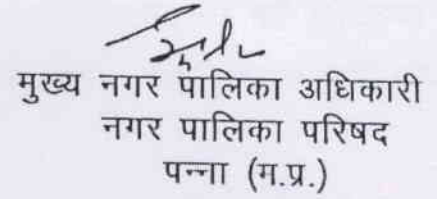 मुख्य नगर पालिका अधिकारी
नगर पालिका परिषद
पन्ना (म.प्र.)